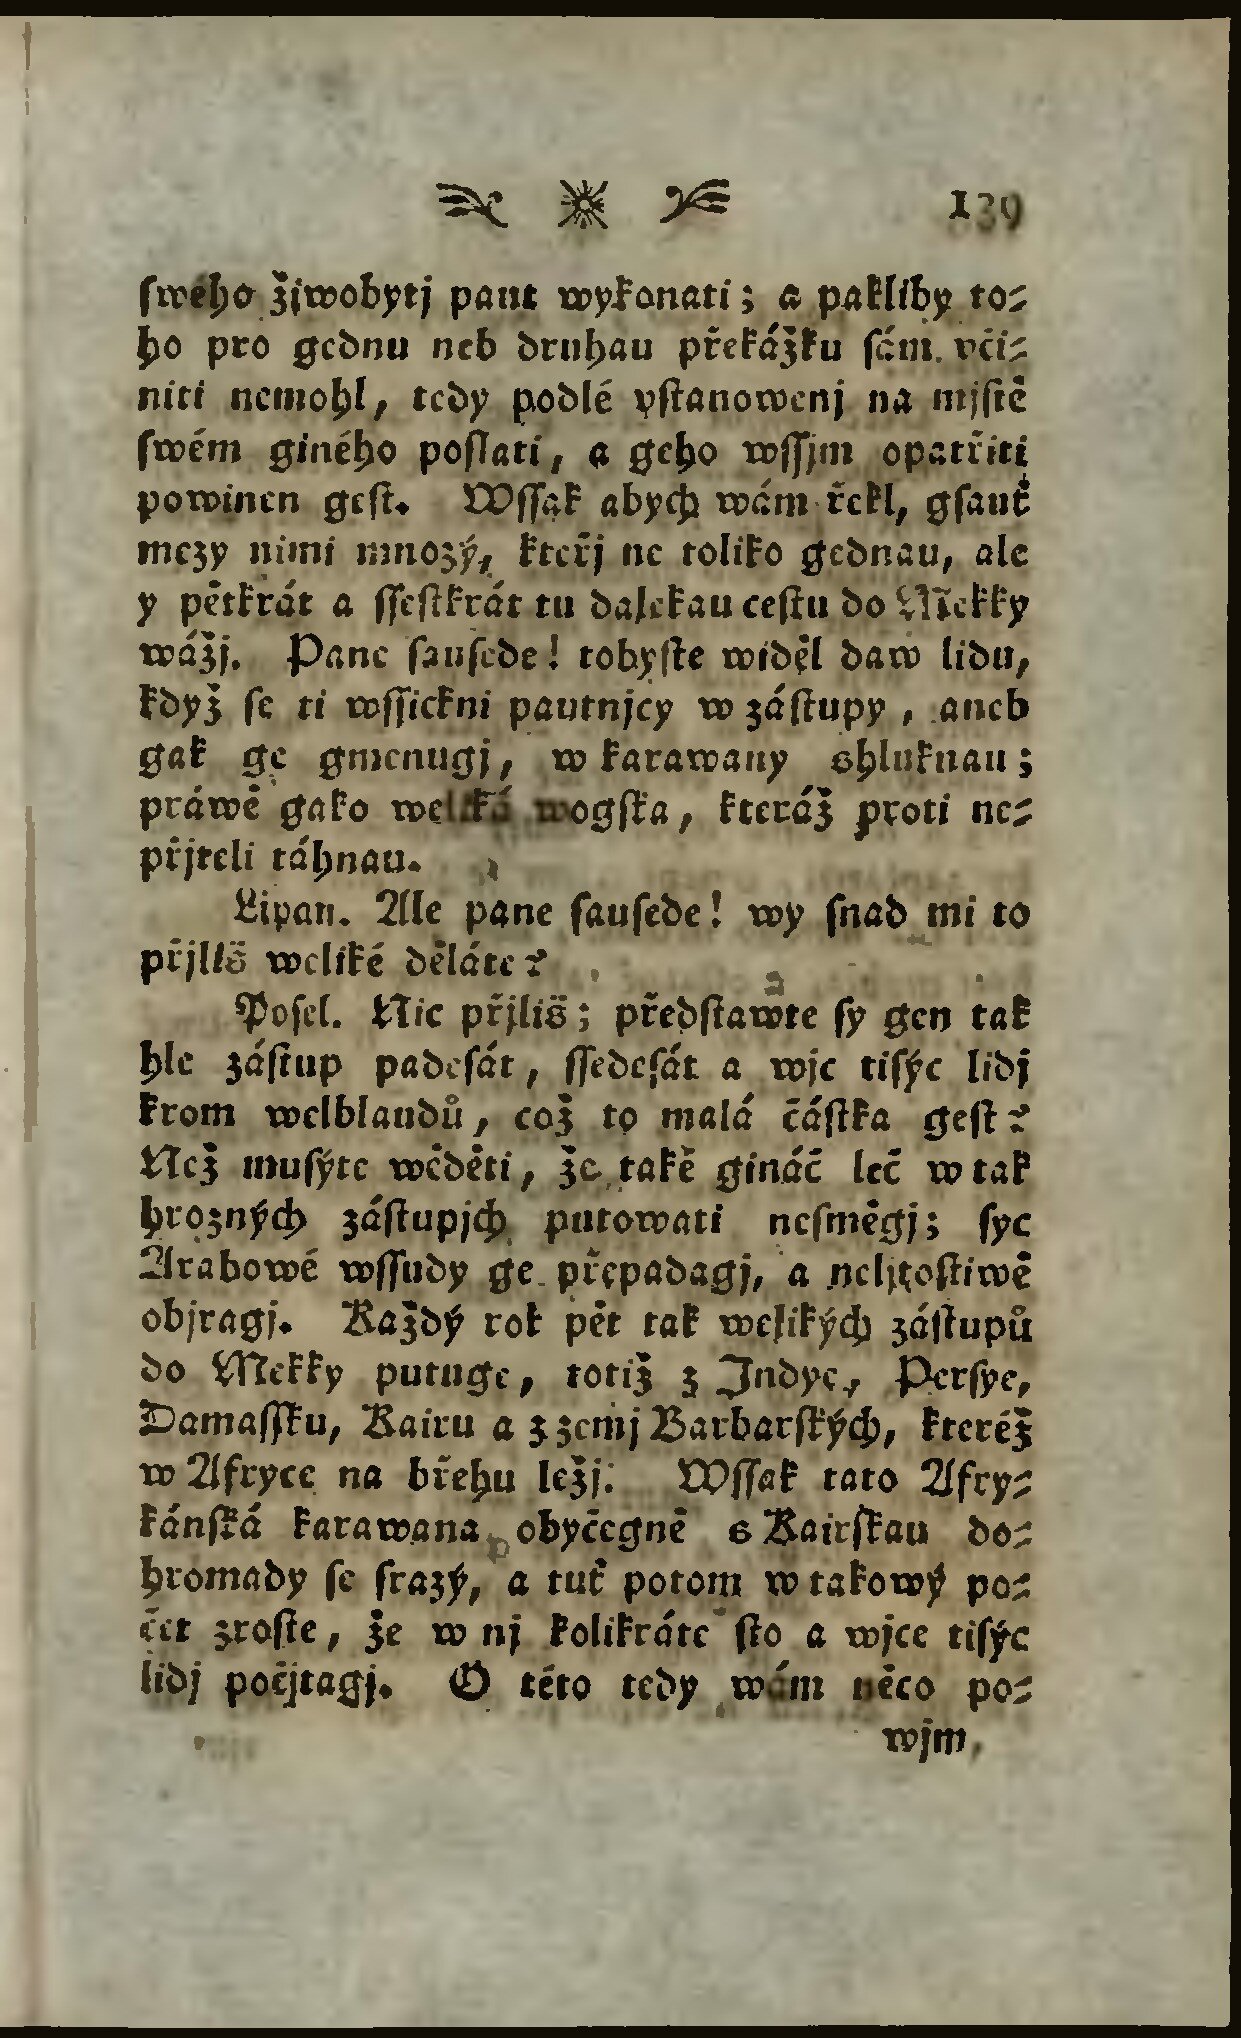 139
ſwého žiwobytj paut wykonati; a pakliby to⸗
ho pro gednu neb druhau překážku ſám vči⸗
niti nemohl, tedy podlé vſtanowenj na mjſtě
ſwém giného poſlati, a geho wſſjm opatřiti
powinen geſt. Wſſak abych wám řekl, gſauť
mezy nimi mnozý, kteřj ne toliko gednau, ale
y pětkrát a ſſeſtkrát tu dalekau ceſtu do Mekky
wážj. Pane ſauſede! tobyſte widěl daw lidu,
když ſe ti wſſickni pautnjcy w záſtupy, aneb
gak ge gmenugj, w karawany shluknau;
práwě gako weliká wogſka, kteráž proti ne⸗
přjteli táhnau.
Lipan. Ale pane ſauſede! wy ſnad mi to
přjliš weliké děláte?
Poſel. Nic přjliš; předſtawte ſy gen tak
hle záſtup padeſát, ſſedeſát a wjc tiſýc lidj
krom welblaudů, což to malá částka geſt?
Než muſýte wěděti, že takě gináč leč w tak
hrozných záſtupjch putowati neſměgj; ſyc
Arabowé wſſudy ge přepadagj, a neljtoſtiwě
objragj. Každý rok pět tak welikých záſtupů
do Mekky putuge, totiž z Indye, Perſye,
Damaſſku, Kairu a z zemj Barbarſkých, kteréž
w Afryce na břehu ležj. Wſſak tato Afry⸗
kánſká karawana obyčegně s Kairſkau do⸗
hromady ſe ſrazý, a tuť potom w takowý po⸗
čet zroſte, že w nj kolikráte ſto a wjce tiſýc
lidj počjtagj. O této tedy wám něco po⸗
wjm,